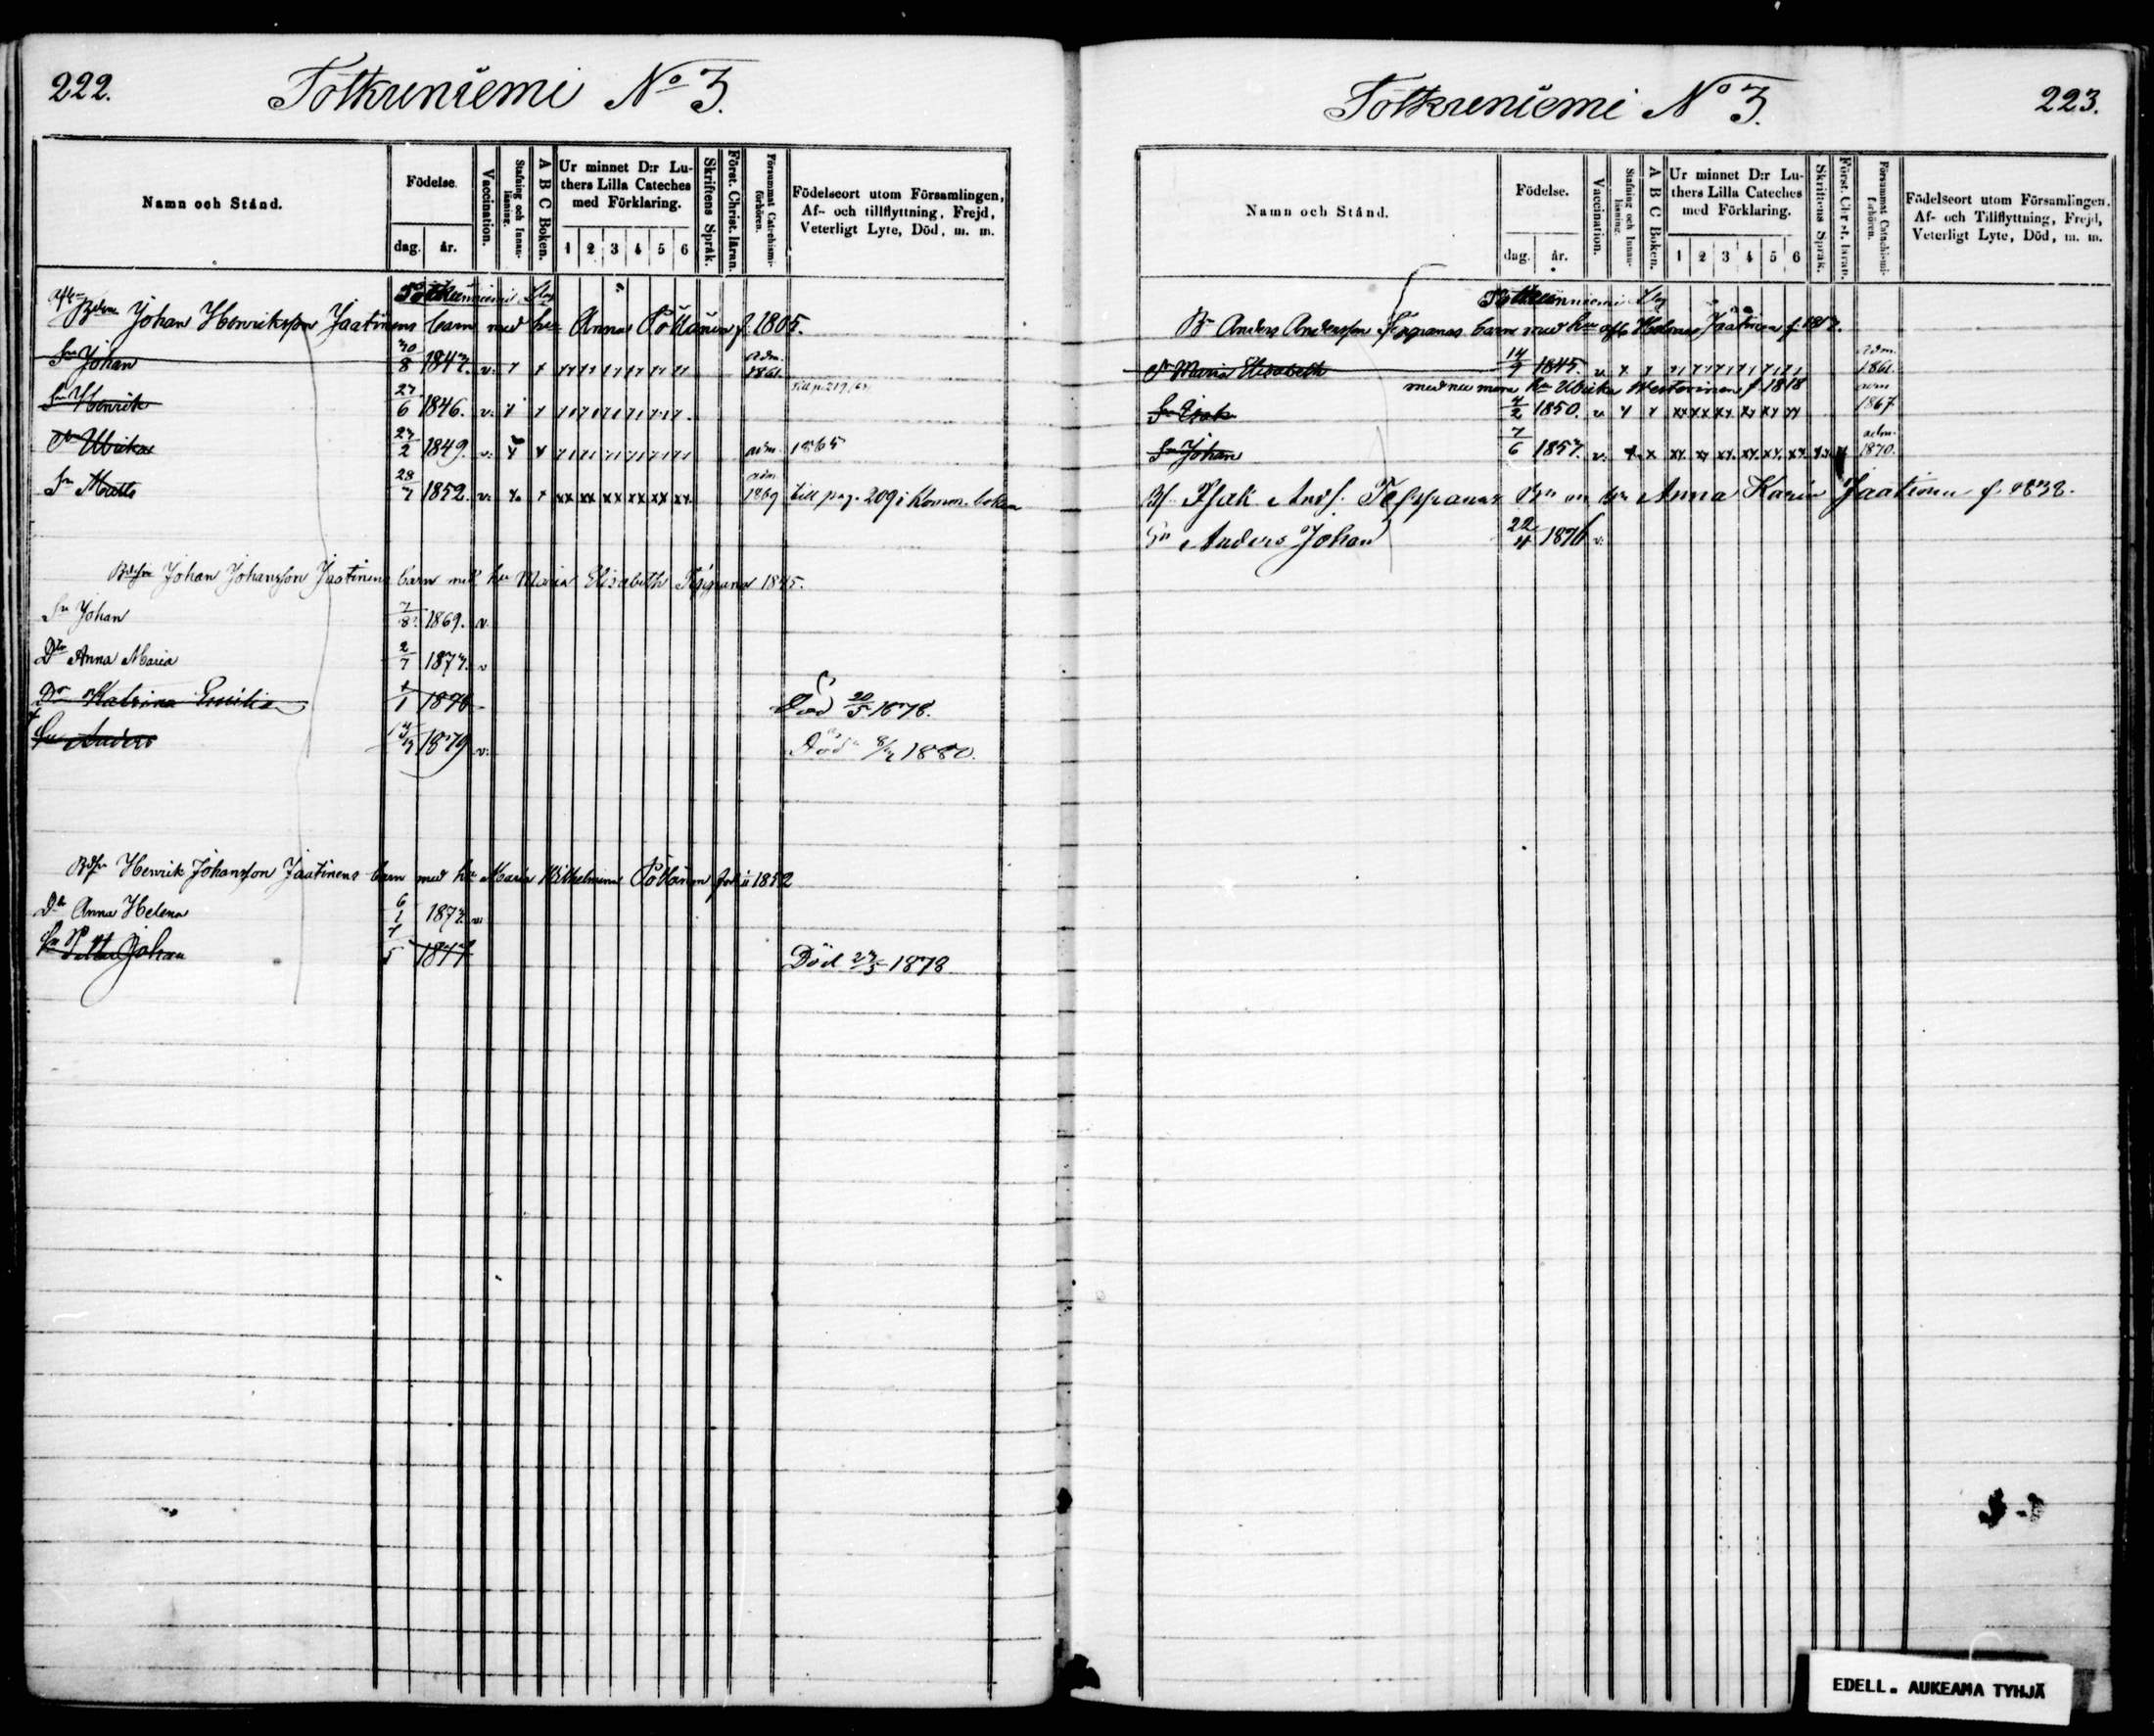 222.
Totkuniemi No 3.
Namn och Stånd.
Födelse.
dag.
år.
Vaccination.
Stafning och Innan-läsning.
A B C Boken.
Ur minnet D:r Lu-
thers Lilla Cateches
med Förklaring.
1 2 3 4 5 6
Skriftens Språk.
Först. Christ. läran.
Försummat Catechismi-förhören.
Födelseort utom Församlingen,
Af- och tillflyttning, Frejd,
Veterligt Lyte, Död, m. m.
Totkunniemi
Johan Henriksson Jaatinens barn med hu Anna Pöllänen f. 1805.
Sn Johan 30/8 1842. v. adm. 1861.
Sn Henrik 27/6 1846. v.
Dr Ulrika 27/2 1849. v. adm. 1865
Sn Matts 28/7 1852. v. adm 1869 till pag. 209 i Komm. boken
Johan Johansson Jaatinens barn med hu Maria Elisabeth 1845.
Sn Johan 7/8 1869. v.
Dr Anna Maria 2/7 1872. v
Dr Katrina Emilia 1/1 1876 Död 20/5 1878.
Sn Anders 1879 v. Död 1880.
Henrik Johansson Jaatinens barn med hu Maria Wilhelmina Pöllänen 1852
Dr Anna Helena 6/1 1872. v.
Sn Petter Johan 4/5 1877 Död 27/5 1878
Totkuniemi No 3.
223.
Namn och Stånd.
Födelse.
dag.
år.
Vaccination.
Stafning och Innan-läsning.
A B C Boken.
Ur minnet D:r Lu-
thers Lilla Cateches
med Förklaring.
1 2 3 4 5 6
Skriftens Språk.
Först. Christ. läran.
Försummat Catechismi-förhören.
Födelseort utom Församlingen,
Af- och Tillflyttning, Frejd,
Veterligt Lyte, Död, m. m.
Totkunniemi
Anders Andersson barn med hu afl. Helena Jaatinen f.
Dr Maria Elisabeth 14/7 1845. v. adm. 1861
med nu mera hu Ulrika Westerinen f 1818
Sn Isak 4/2 1850. v. adm 1867
Sn Johan 7/6 1857. v. adm. 1870.
Isak And. barn hu Anna Karin Jaatinen f. 1838.
Sn Anders Johan 22/4 1876 v.
EDELL. AUKEAMA TYHJÄ